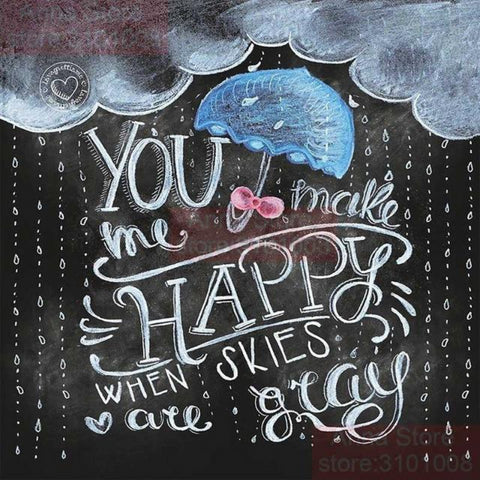 YOU make
me
HAPPY
WHEN SKIES
are gray
Store
store:3101008